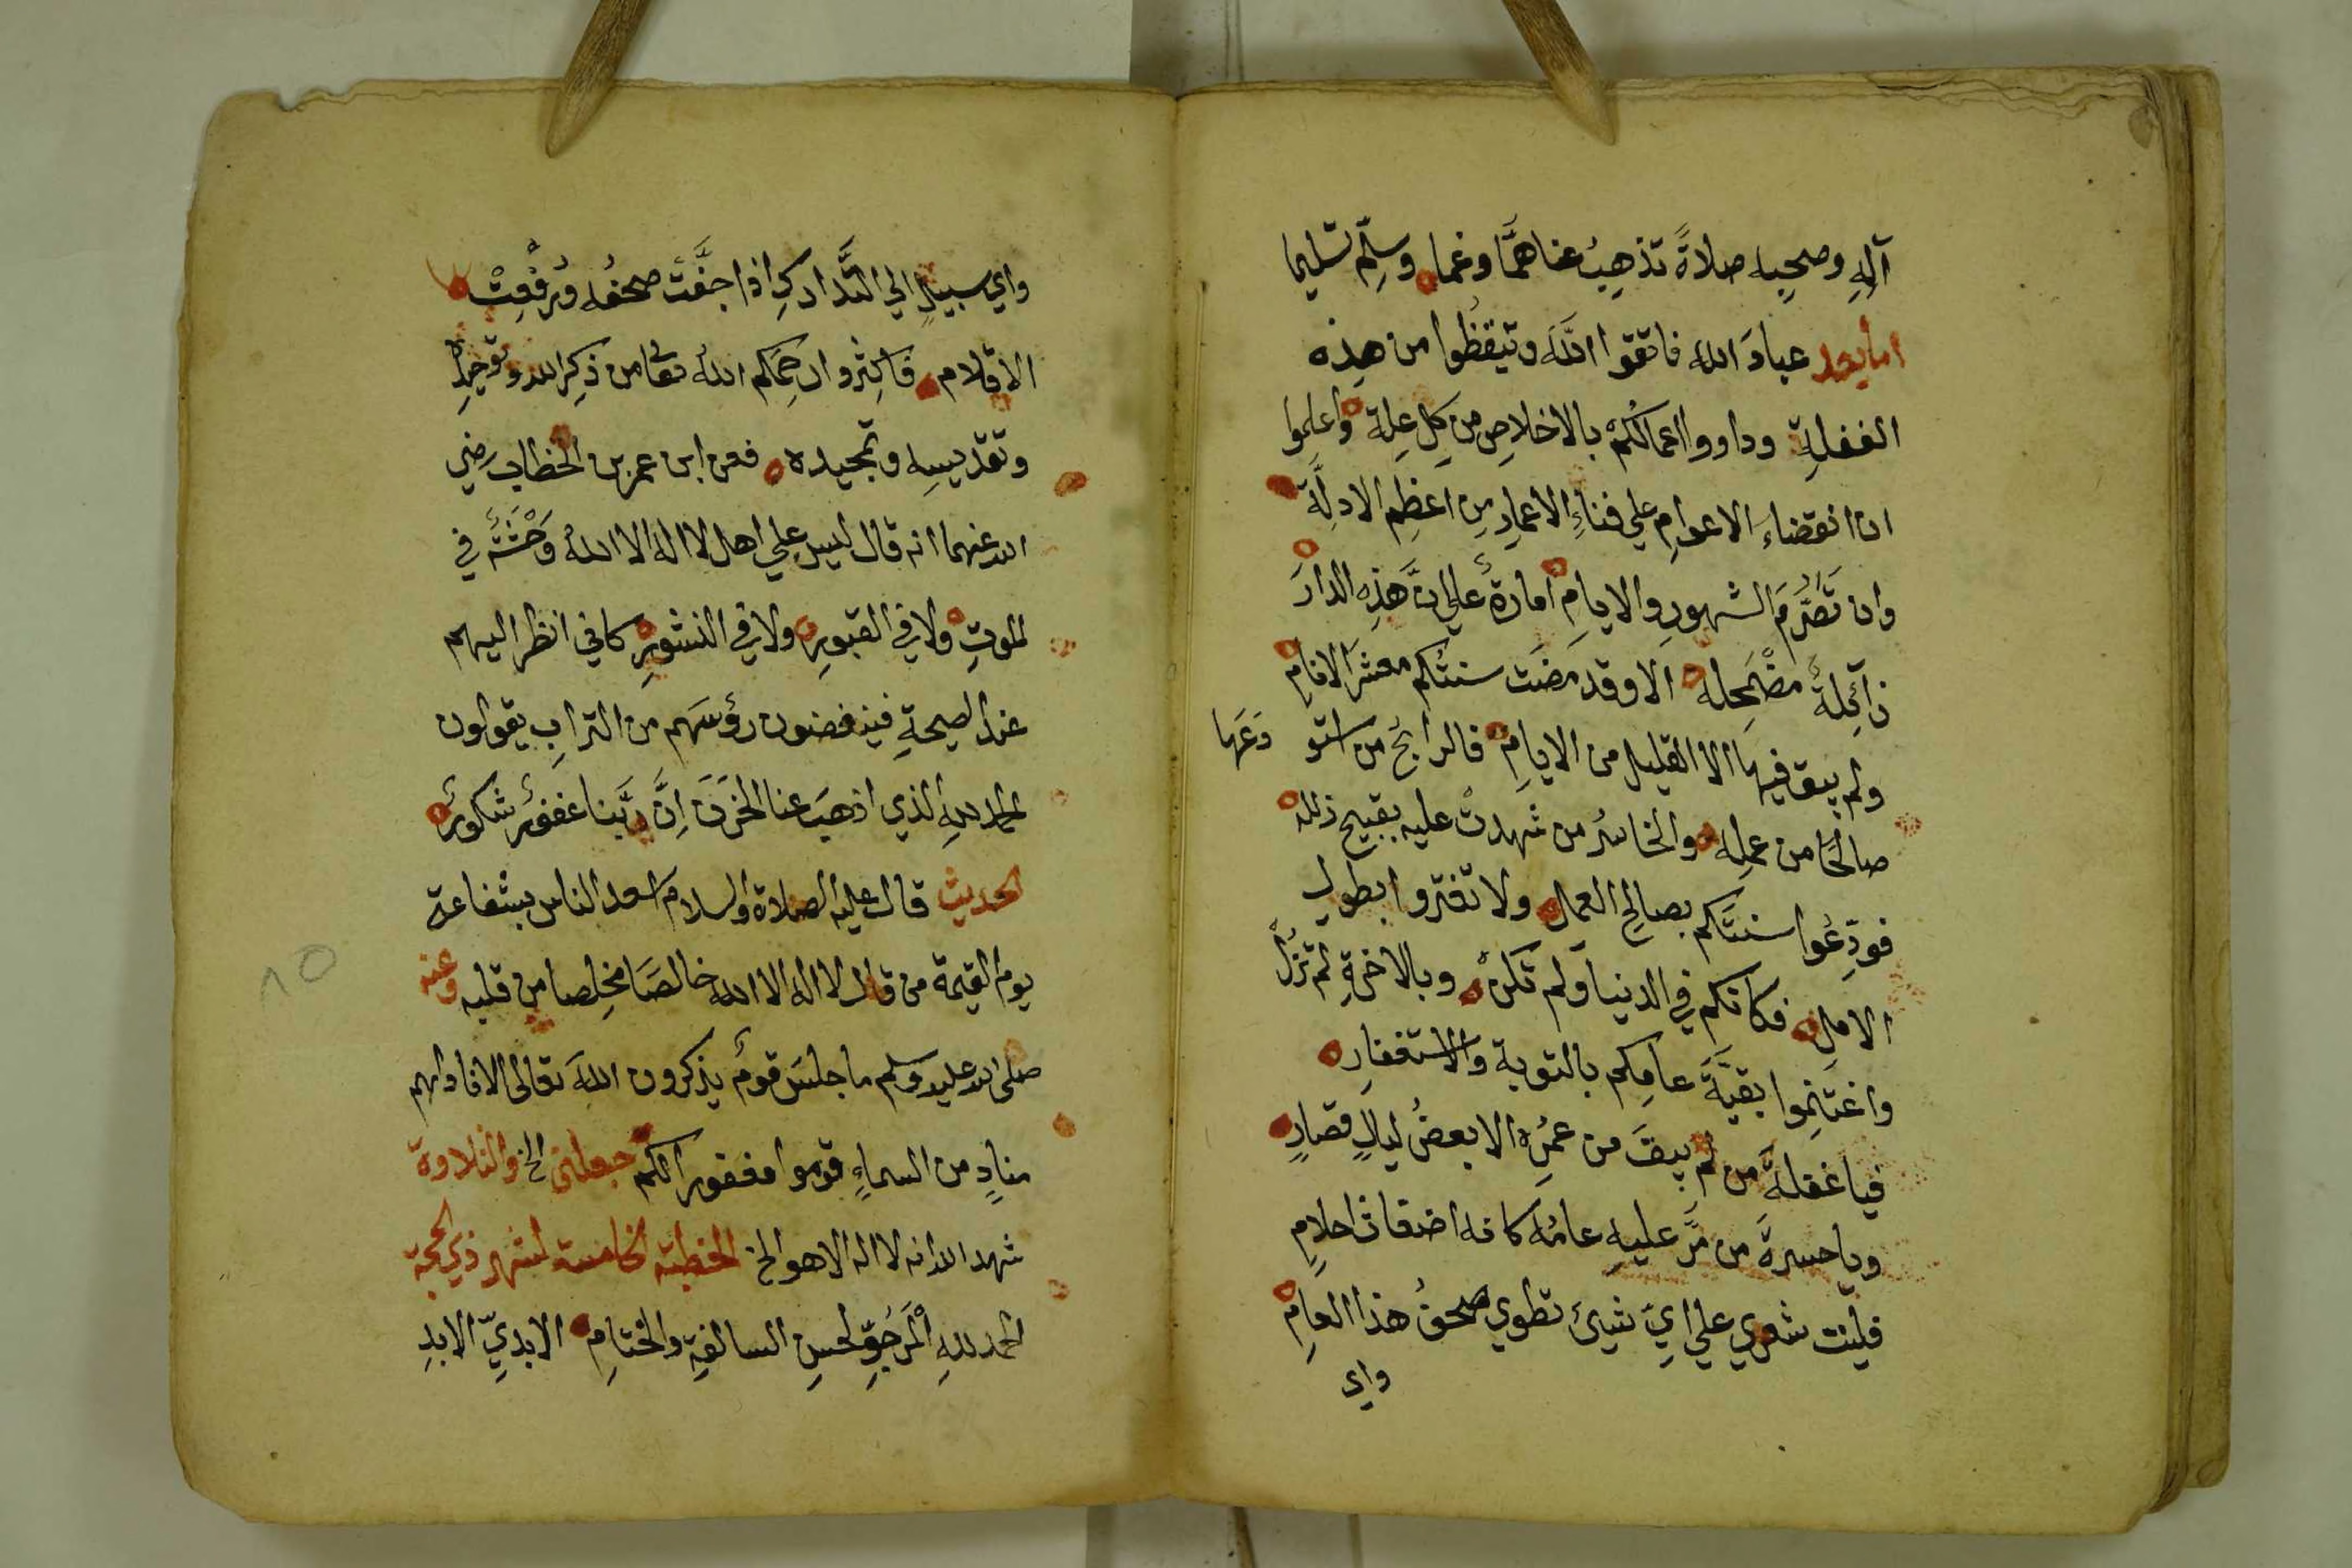 آلِهِ وصحبِه صلاةً تذهِبُ عنا همًّا وغما وسلِّم تسليما
اما بعد عبادَ الله فاتقوا اللَّهَ وتيقظُوا من هذه
الغفلةِ وداووا اعمالكُمْ بالاخلاصِ من كلِ عِلة واعلموا
ان انقضاء الاعوامِ علي فناءِ الاعمارِ مِن اعظمِ الادلَّة
وان تَصَرُّمَ الشهورِ والايامِ أمارةٌ علي انَّ هذِه الدارَ
زآئِلةٌ مضْمَحِله الا وقد مَضَت سنتُكم معشرَ الانامِ
ولم يبق فيها الا القليل من الايامِ فالرابحُ من استو دَعَها
صالحًا من عملِه والخاسرُ من شهدتْ عليه بقبيح زلله
فودِّعُوا سنتَكم بصالحِ العمل ولا تغتروا بطولِ
الاملِ فكانكم في الدنيا ولم تكنْ وبالاخرةِ لم تزلْ
واغتنِموا بقيَّةَ عامِكم بالتوبة والاستغفارِ
فيا غفلةَ من لم يبقَ من عمرِه الا بعضُ ليالٍ قصارٍ
ويا حسرةَ من مَّر عليهِ عامُه كانه اضغاث احلامِ
فليت شعري علي ايِّ شيئ تطوي صحفُ هذا العامِ
واي
واي سبيلٍ الي التَّداركِ اذا جفَّتْ صحفُه ورُفْعِتْ
الاقلام فاكثِروا رحِمَكم اللهُ تعا من ذكِر الله وتوحيدِه
وتقديسِه وتمجيده فعن ابن عمر بن الخطاب رضي
الله عنهما انه قال ليس علي اهل لا اله الا اللهُ وَحْشَةٌ في
الموتِ ولا في القبورِ ولا في النشورِ كاني انظر اليهم
عند الصيحةِ ينفضون رؤسَهم من الترابِ يقولون
الحمد للهِ الذي اذهبَ عنا الحَزَنَ اِنَّ ربَّنا غفورٌ شكورٌ
الحديث قال عليه الصلاة والسلام اسعد الناس بشفاعة
يوم القيمة من قال لا اله الا الله خالصًا مخلِصا من قلبه وعنه
صلى الله عليه وسلم ما جلسَ قومٌ يذكرون اللهَ تعالى الا ناداهم
منادٍ من السماءِ قوموا مغفورا لكم جعلني الخ والتلاوة
شهد الله انه لا اله الا هو الخ الخطبة الخامسة لشهر ذي الحجة
الحمد للهِ الْمَرجُوِّ لحسنِ السالفةِ والختامِ الابديِّ الابدِ
٨٥